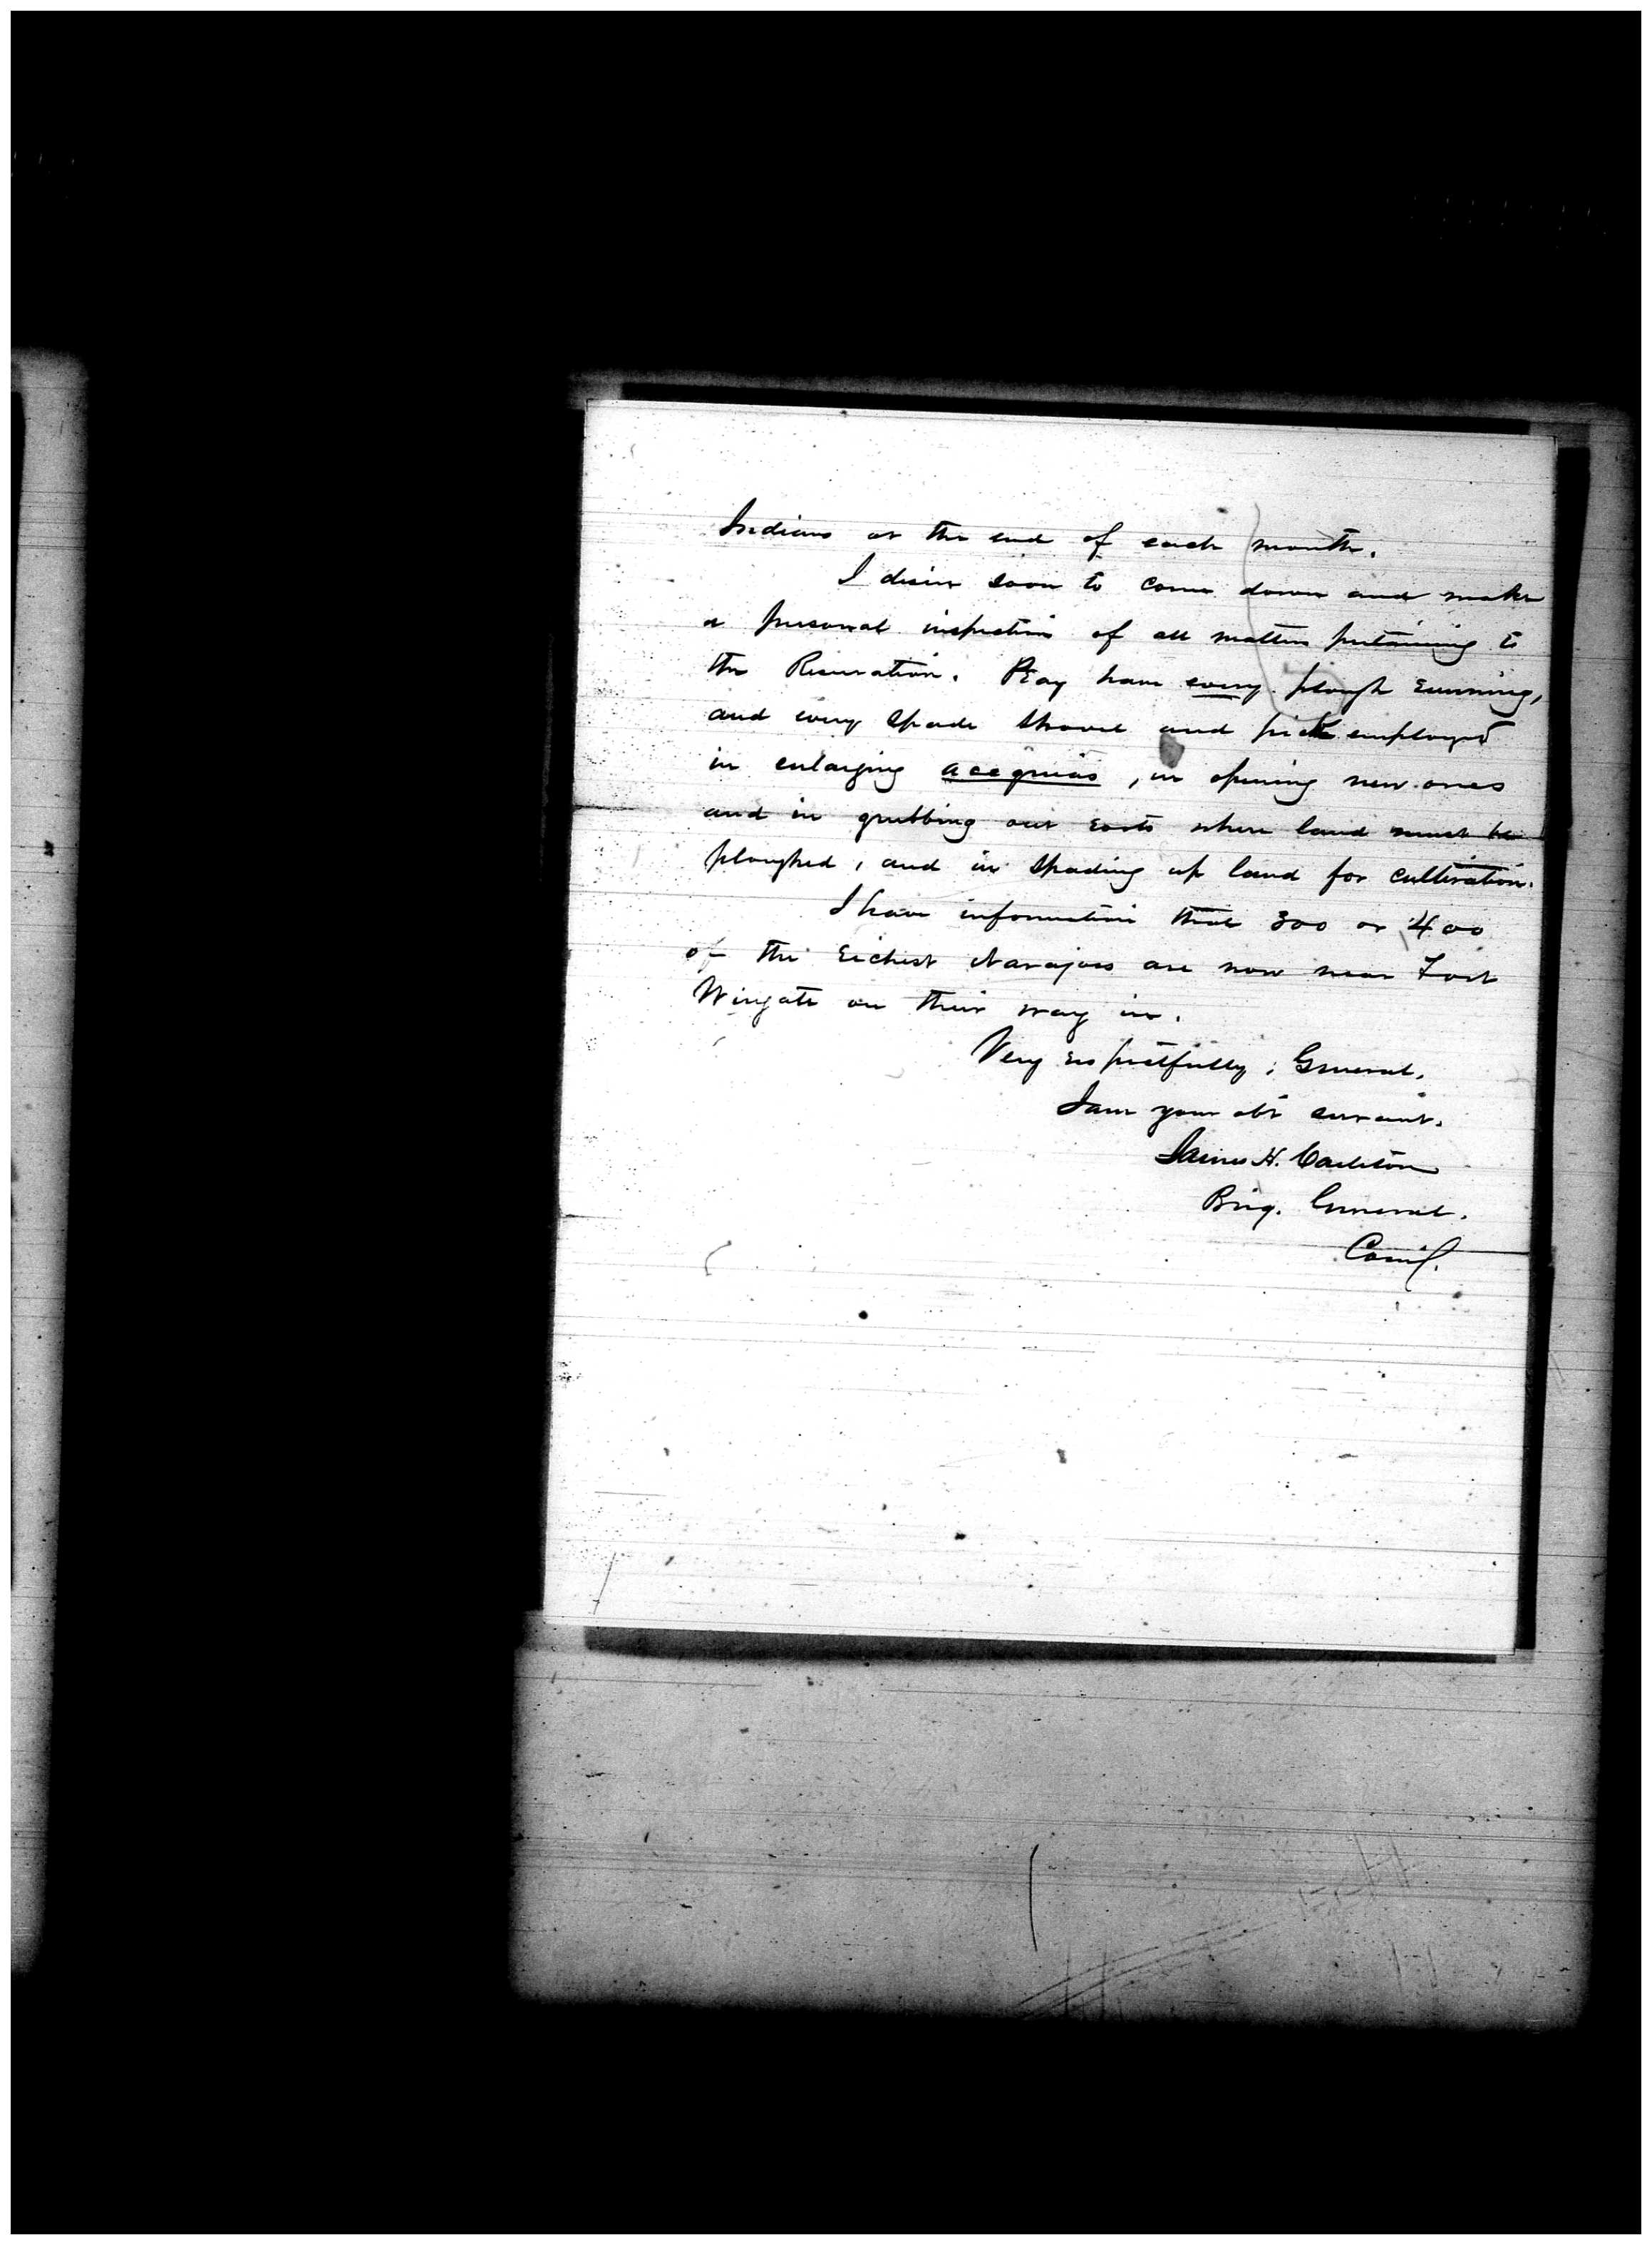 Indians at the end of each month.
I desire soon to come down and make
a personal inspection of all matters pertaining to
the Reservation. Pray have every plough running,
and every spade shovel and pick employed
in enlarging acequias, in opening new ones
and in grubbing out roots where land must be
ploughed, and in spading up land for cultivation.
I have information that 300 or 400
of the richest Navajoes are now near Fort
Wingate on their way in.
Very respectfully, General,
I am your obt servant.
James H. Carleton
Brig. General.
Comd'g.